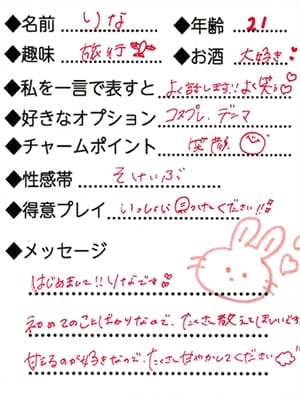 ◆名前 りな ◆年齢 21
◆趣味 旅行 ◆お酒 大好き
◆私を一言で表すと よく話します!!よく笑う♡
◆好きなオプション コスプレ、デンマ
◆チャームポイント 笑顔
◆性感帯 そけいぶ
◆得意プレイ いっしょに つけてください!!
◆メッセージ
はじめまして!!りなです
初めてのことばかりなので、たくさん教えてほしいです
甘えるのが好きなので、たくさん甘やかしてください